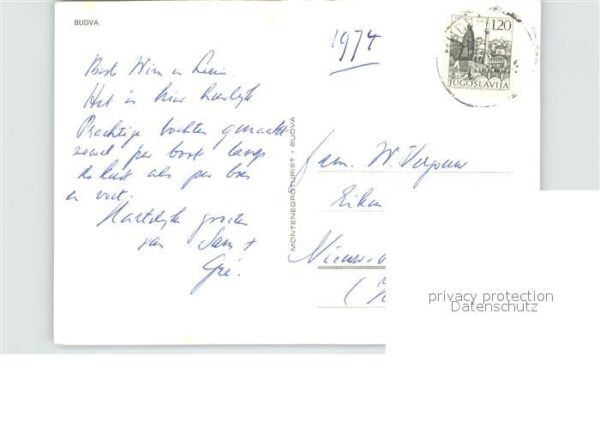 BUDVA
1974
1.20
JUGOSLAVIJA
Beste Wim en Lenie
Het is hier heerlijk
Prachtige tochten gemaakt
zowel per boot langs
de kust als per bus
en voet.
Hartelijke groeten
van Sam +
Gré.
MONTENEGROTURIST - BUDVA
Fam. W. Verjouw
Eiken
Nieuw
privacy protection
Datenschutz